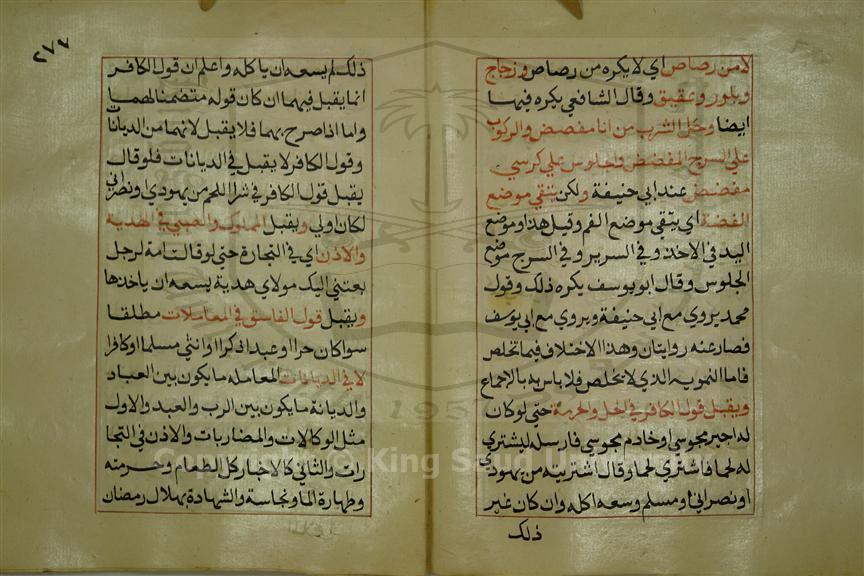 لا من رصاص اي لا يكره من رصاص وزجاج
وبلور وعقيق وقال الشافعي يكره فيها
ايضا وحل الشرب من انا مفضض والركوب
علي السرج المفضض والجلوس علي كرسي
مفضض عند ابي حنيفة ولكن يتقي موضع
الفضة اي يتقي موضع الفم وقيل هذا وموضع
اليد في الاخذ وفي السرير وفي السرج موضع
الجلوس وقال ابو يوسف يكره ذلك وقول
محمد يروي مع ابي حنيفة ويروي مع ابي يوسف
فصار عنه روايتان وهذا الاختلاف فيما تخلص
فاما التمويه الذي لا يخلص فلا باس به بالاجماع
ويقبل قول الكافر في الحل والحرمة حتي لو كان
له اجير مجوسي او خادم مجوسي فارسله ليشتري
له لحما فاشتري لحما وقال اشتريته من يهودي
او نصراني او مسلم وسعه اكله وان كان غير
ذلك
٢٧٧
ذلك لم يسعه ان ياكله واعلم ان قول الكافر
انما يقبل فيهما ان كان قوله متضمنا لهما
واما اذا صرح بهما فلا يقبل لانهما من الديانات
وقول الكافر لا يقبل في الديانات فلو قال
يقبل قول الكافر في شرا اللحم من يهودي ونصراني
لكان اولي ويقبل المملوك والصبي في الهدية
والاذن اي في التجارة حتي لو قالت امة لرجل
بعثني اليك مولاي هدية يسعه ان ياخذها
ويقبل قول الفاسق في المعاملات مطلقا
سوا كان حرا او عبدا ذكرا او انثي مسلما او كافرا
لا في الديانات المعامله ما يكون بين العباد
والديانة ما يكون بين الرب والعبد والاول
مثل الوكالات والمضاربات والاذن في التجا
رات والثاني كالاخبار كل الطعام وحرمته
وطهارة الما ونجاسة والشهادة بهلال رمضان
Copyright © King Saud University
1957